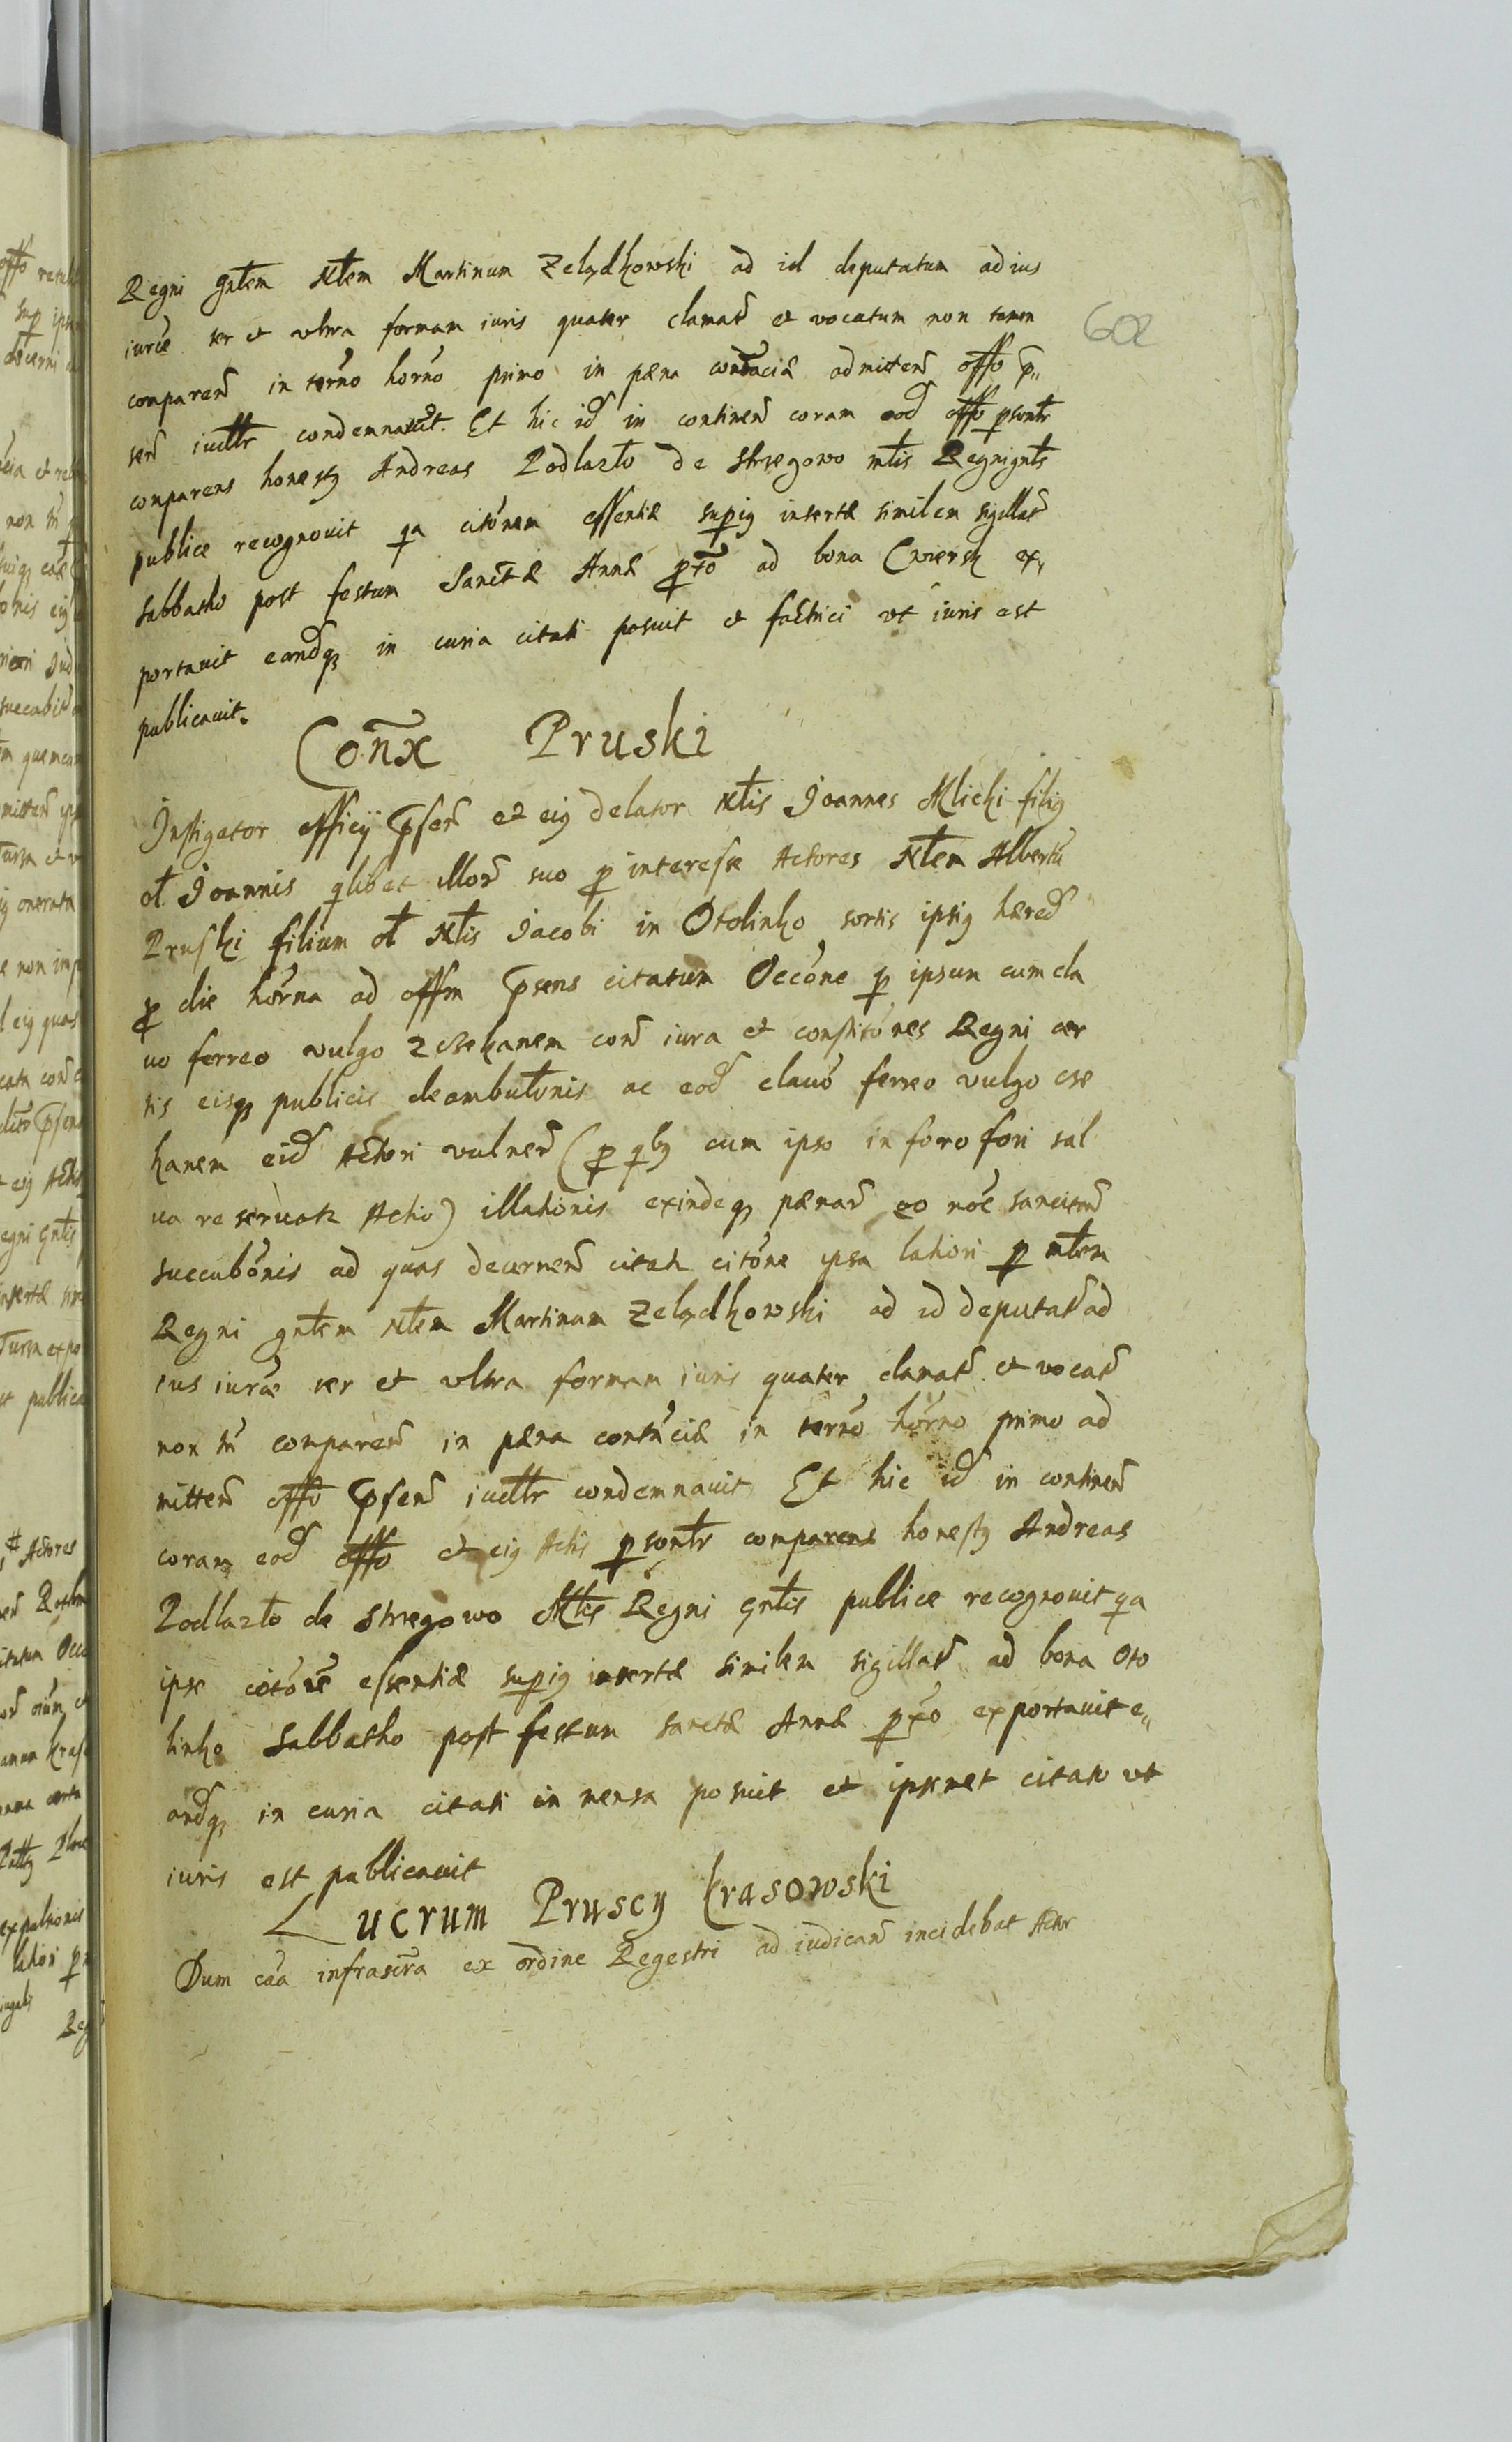 Regni gntem Ntem Martinum Zelądkowski ad id deputatum ad ius
iurce ter et vltra formam iuris quater clamat et vocatum non tamen
comparen in terno horno primo in pæna contaciæ admitten offo p„
sen iudltr condemnauit. Et hic id in continen coram eod offo psonlr
comparens honestq Andreas Podlazlo de Strzegowo mtis Regni gntis
publice recognouit qa citonem essentiæ supiq insertæ similem sigillat
sabbatho post festum Sanctæ Annæ pxo ad bona Cwiersk ex„
portauit eandq in curia citati posuit et factrici vt iuris est
publicauit.
Conx Pruski
Instigator officÿ psen et eiq delator Ntis Joannes Mlicki filiq
ol Joannis qlibet illor suo p interesse Actores Ntem Albertu
Pruski filium ol Ntis Jacobi in Otolinko sortis ipsiq hæred
p die horna ad offm psens citatum Occone p ipsum cum cla
uo ferreo vulgo z czekanem con iura et constitones Regni cer
tis eisq publicis deambultonis ac eod clauo ferreo vulgo cze
kanem eid Actori vulner (p qbq cum ipso in foro fori sal
ua reseruatr Actio) illationis exindeq pænar eo noe sancitar
succubonis ad quas decernen citatr citone ipsa latiori p mtem
Regni gntem Ntem Martinum Zelądkowski ad id deputat ad
ius iurce ter et vltra formam iuris quater clamat et vocat
non tn comparen in pæna contciæ in terno horno primo ad
mitten offo psen iudltr condemnauit Et hic id in continen
coram eod offo et eiq Actis psonlr comparens honestq Andreas
Podlazlo de Strzegowo Mtis Regni gntis publice recognouit qa
ipse citone essentiæ supiq insertæ similem sigillat ad bona Oto
linko Sabbatho post festum sanctæ Annæ pxo exportauit e„
andq in curia citati in mensa posuit et ipsemet citato vt
iuris est publicauit
Lucrum Pruscy Krasowski
Dum caa infrascra ex ordine Regestri ad iudican incidebat Actor
602